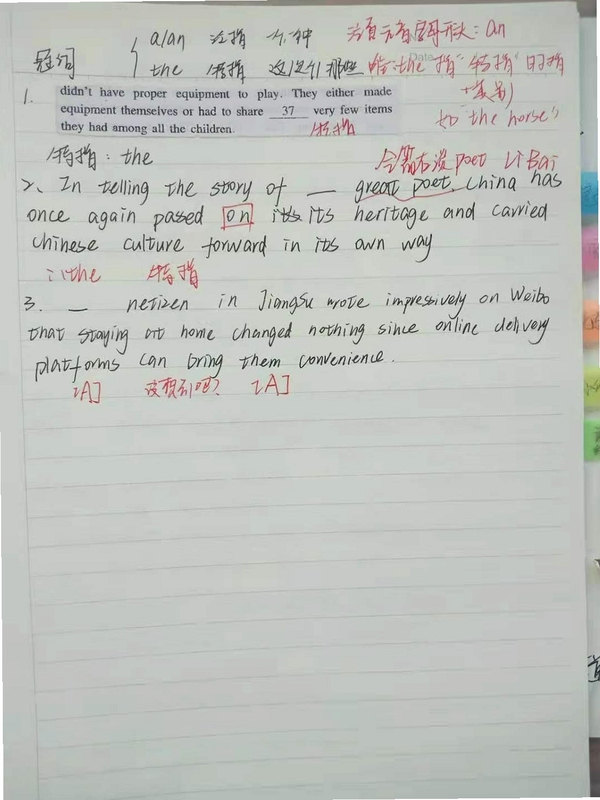 冠词 a/an 泛指 一种 an
the 特指 这(这个)那些 the 指"特指"
Date
1.
didn't have proper equipment to play. They either made
equipment themselves or had to share 37 very few items
they had among all the children. 特指
to "the horse"
特指: the poet Li Bai
2、In telling the story of __ great poet, China has
once again passed on its its heritage and carried
Chinese culture forward in its own way
the 特指
3. __ netizen in Jiangsu wrote impressively on Weibo
that staying at home changed nothing since online delivery
platforms can bring them convenience.
[A] 没想到吧? [A]